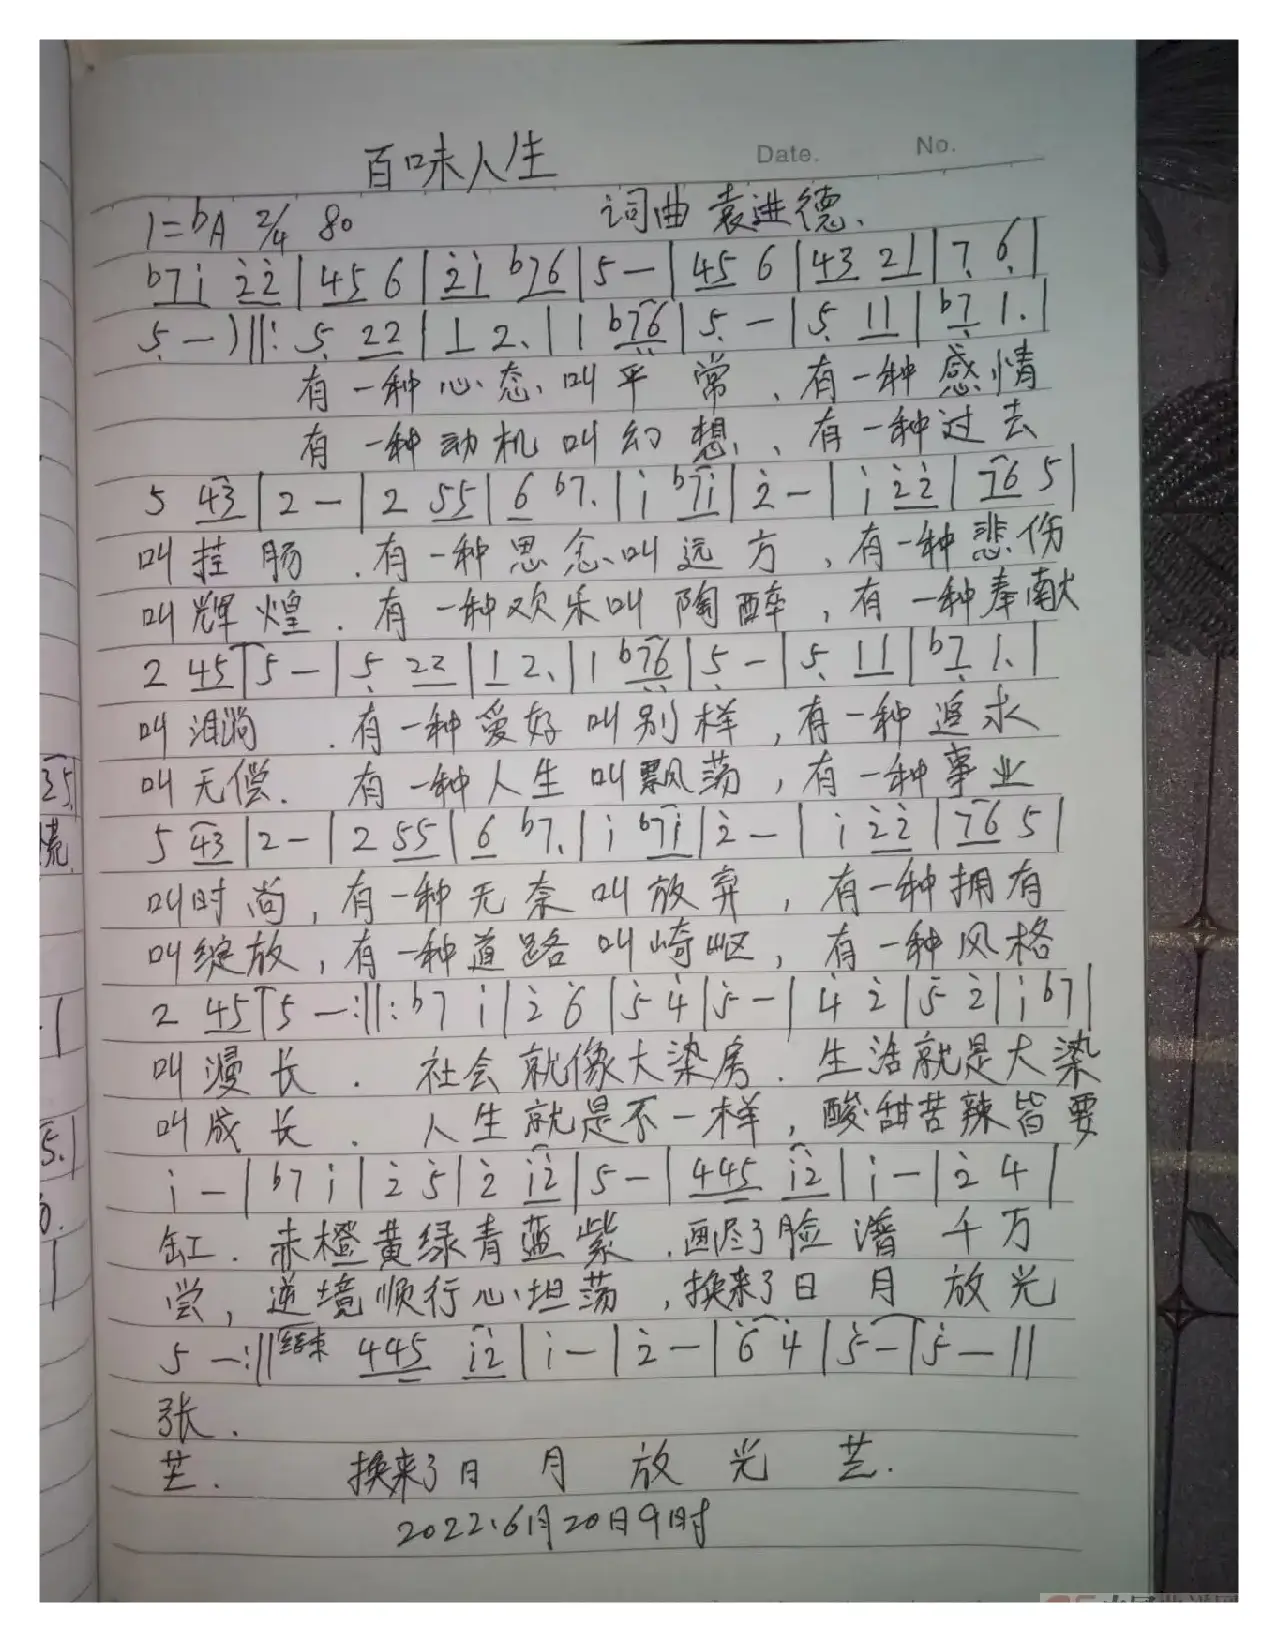 百味人生
Date. No.
1=bA 2/4 80 词曲 袁进德.
b7i 2̇2̇|45 6|2̇i b76|5—|45 6|43 21|7̣ 6̣|
5̣ —)‖: 5̣ 22|1 2.|1 b7̣6̣|5̣ —|5̣ 11|b7̣ 1.|
有一种心态叫平常、有一种感情
有一种动机叫幻想、有一种过去
5 43|2—|2 55|6 b7.|i b7i|2̇—|i 2̇2̇|76 5|
叫挂肠.有一种思念叫远方,有一种悲伤
叫辉煌.有一种欢乐叫陶醉,有一种奉献
2 45|5—|5̣ 22|1 2.|1 b7̣6̣|5̣ —|5̣ 11|b7̣ 1.|
叫泪淌.有一种爱好叫别样,有一种追求
叫无偿.有一种人生叫飘荡,有一种事业
5 43|2—|2 55|6 b7.|i b7i|2̇—|i 2̇2̇|76 5|
叫时尚,有一种无奈叫放弃,有一种拥有
叫绽放,有一种道路叫崎岖,有一种风格
2 45|5—:‖:b7 i|2̇ 6̇|5̇ 4̇|5̇—|4̇ 2̇|5̇ 2̇|i b7|
叫漫长.社会就像大染房.生活就是大染
叫成长.人生就是不一样,酸甜苦辣皆要
i—|b7 i|2̇ 5̇|2̇ i2̇|5—|445 i2̇|i—|2̇ 4|
缸.赤橙黄绿青蓝紫.画尽了脸谱千万
尝,逆境顺行心坦荡,换来了日月放光
5—:‖结束 445 i2̇|i—|2̇—|6̇ 4̇|5̇—|5̇—‖
张.
芒.换来了日月放光芒.
2022.6月20日9时